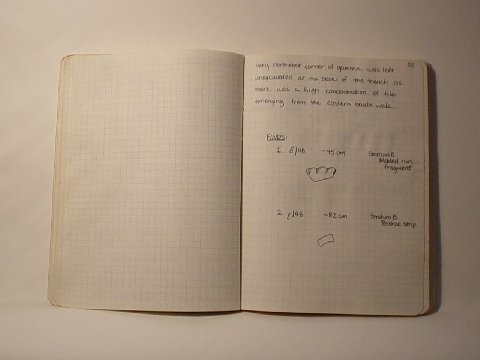 very northeast corner of gamma was left
unexcavated at the base of the trench as
there was a high concentration of tile
emerging from the eastern baulk wall.
Finds:
1. 8/4B ~45cm Stratum B.
rim
fragment
2. 8/4B ~82cm Stratum B.
Bronze strip.